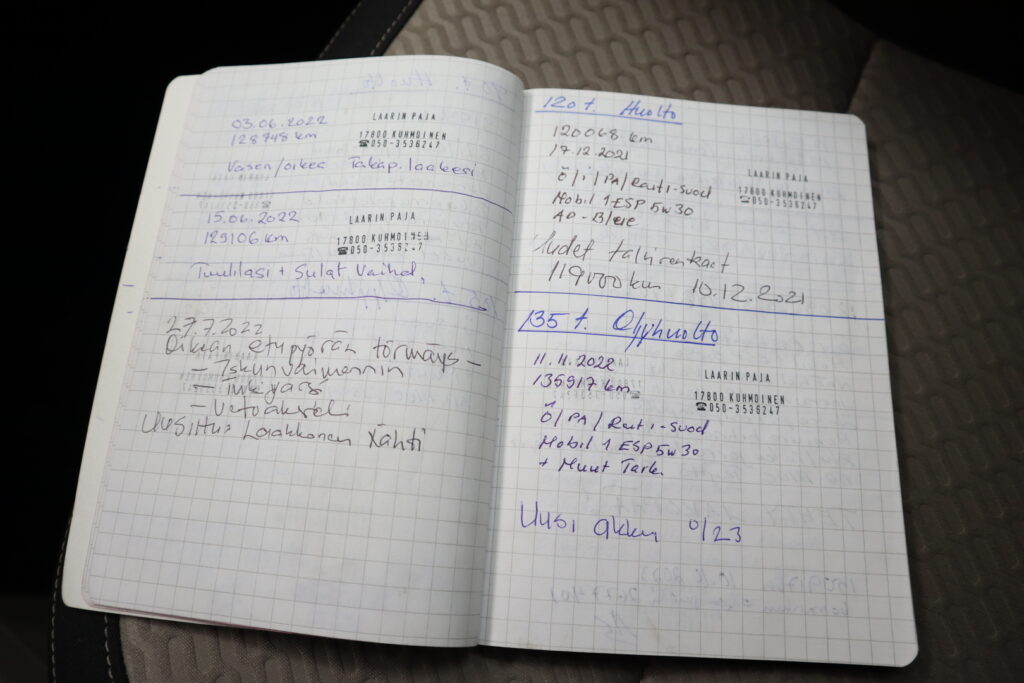 03.06.2022
128748 km
LAARIN PAJA
17800 KUHMOINEN
☎050-3536247
Vasen/oikea Takap. laakeri
15.06.2022
129106 km
LAARIN PAJA
17800 KUHMOINEN
☎050-3536247
Tuulilasi + Sulat Vaihd.
27.7.2022
Oikean etupyörän törmäys –
– Iskunvaimennin
– Tukivarsi
– Vetoakseli
Uusittu: Laakkonen
120 t. Huolto
120068 km
17.12.2021
Ö/i/PA/Rait.-suod
Mobil 1 ESP 5w30
AD-Blue
LAARIN PAJA
17800 KUHMOINEN
☎050-3536247
Uudet talvirenkaat
119000km 10.12.2021
135 t. Öljyhuolto
11.11.2022
135917 km
Ö/PA/Rait.-Suod
Mobil 1 ESP 5w30
+ Muut Tark.
LAARIN PAJA
17800 KUHMOINEN
☎050-3536247
Uusi akku /23